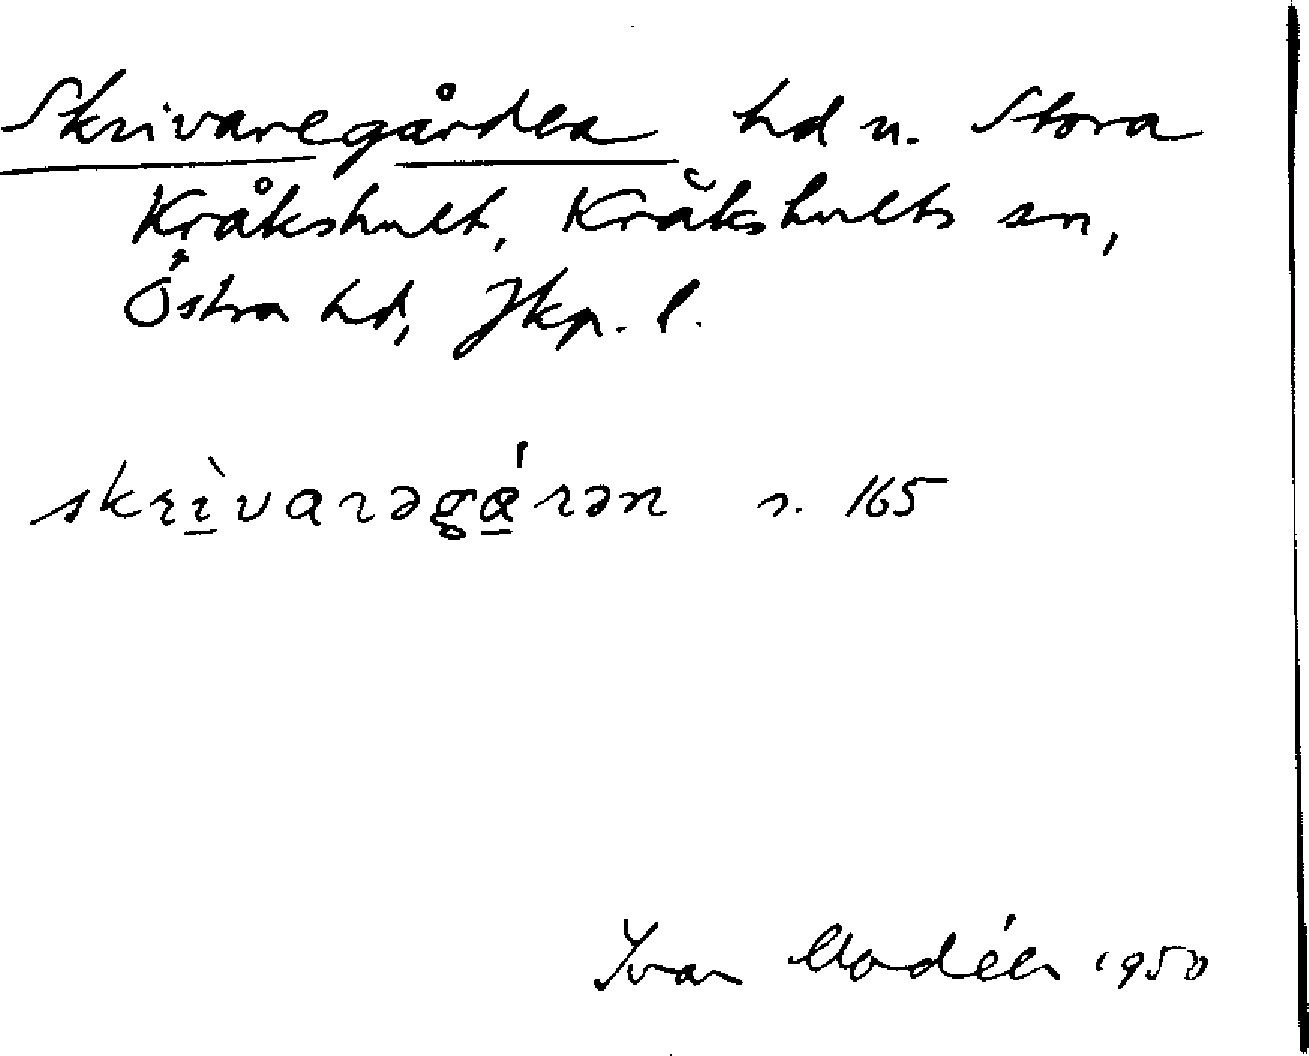 Skrivaregården hd u. Stora
Kråkshult, Kråkshults sn,
Östra hd, Jkp. l.
skrìvarəgárən s. 165
Ivar Modéer 1950